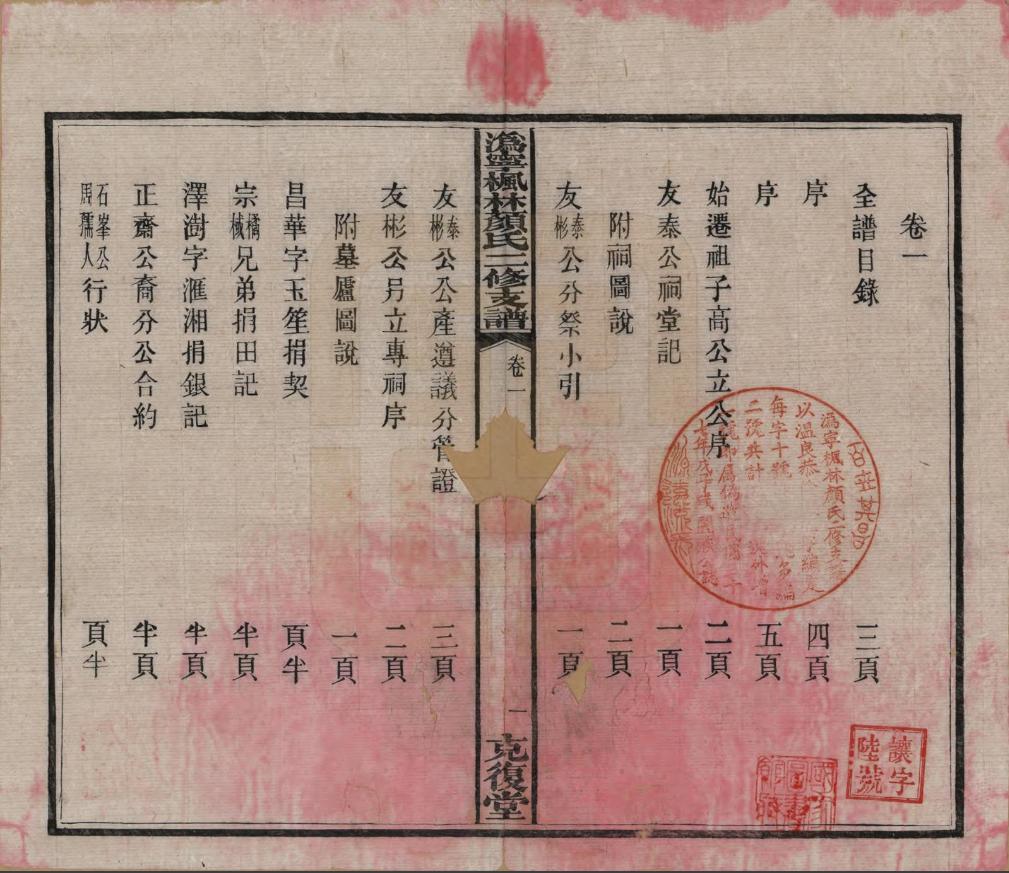 卷一
全譜目錄 三頁
序 四頁
序 五頁
始遷祖子高公立公序 二頁
友泰公祠堂記 一頁
附祠圖說 二頁
友泰彬公分祭小引 一頁
溈寧楓林顏氏二修支譜 卷一 一 克復堂
友泰彬公公產遵議分管證 三頁
友彬公另立專祠序 二頁
附墓廬圖說 一頁
昌華字玉笙捐契 頁半
宗橘棫兄弟捐田記 半頁
澤澍字滙湘捐銀記 半頁
正齋公裔分公合約 半頁
石峯公周孺人行狀 頁半
溈寧楓林顏氏二修支譜
以溫良恭
每字十號
二號共計
讓字
陸號